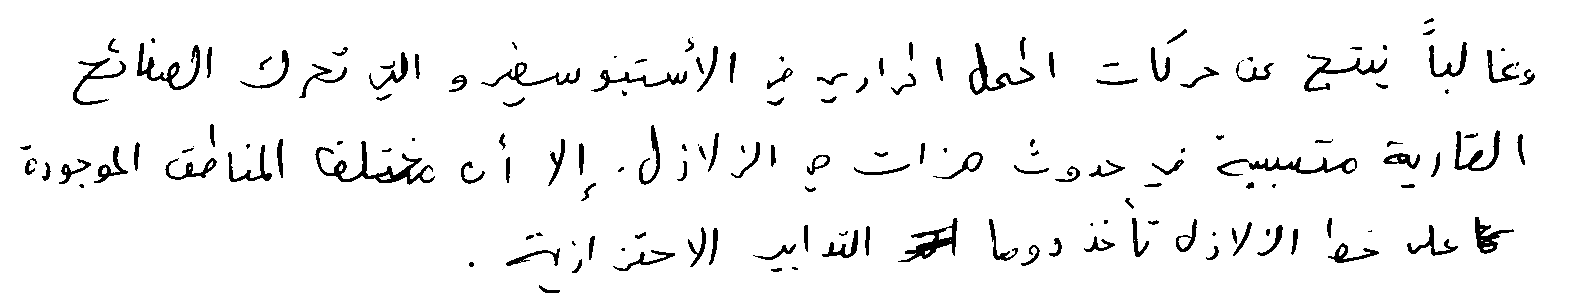 وغالباً ينتج عن حركات الحمل الحراري في الأستينوسفير و التي تحرك الصفائح
القارية متسببة في حدوث هزات هي الزلازل. إلا أن مختلف المناطق الموجودة
على خط الزلازل تأخذ دوما التدابير الاحترازية .